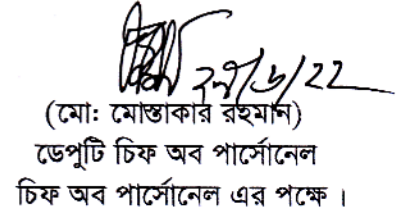 ২৭/৬/২২
(মো: মোস্তাকার রহমান)
ডেপুটি চিফ অব পার্সোনেল
চিফ অব পার্সোনেল এর পক্ষে ।